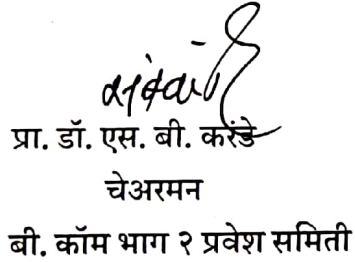 प्रा. डॉ. एस. बी. करंडे
चेअरमन
बी. कॉम भाग २ प्रवेश समिती